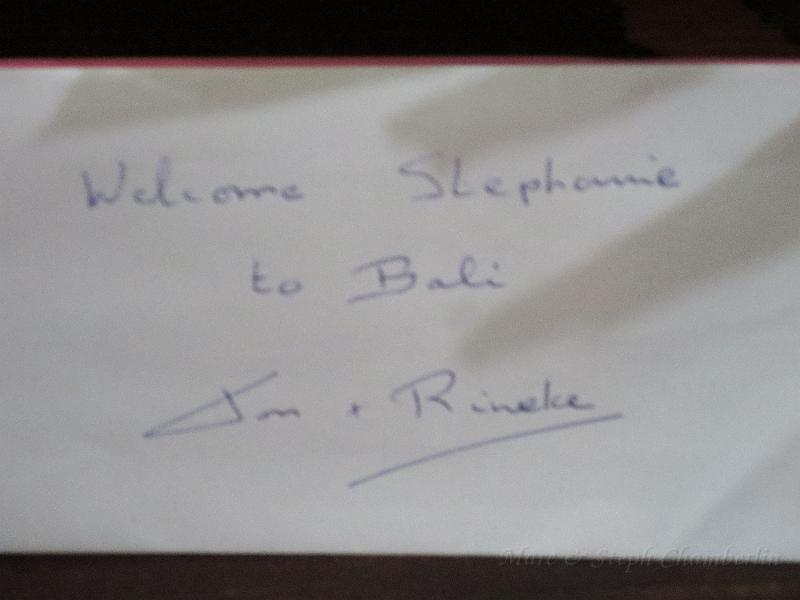 Welcome Stephanie
to Bali
Jon + Rineke
Marc & Steph Chamberlin